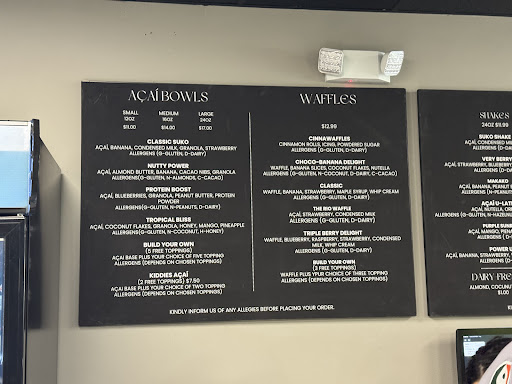 AÇAÍ BOWLS
SMALL MEDIUM LARGE
12OZ 16OZ 24OZ
$11.00 $14.00 $17.00
CLASSIC SUKO
AÇAÍ, BANANA, CONDENSED MILK, GRANOLA, STRAWBERRY
ALLERGENS (G-GLUTEN, D-DAIRY)
NUTTY POWER
AÇAÍ, ALMOND BUTTER, BANANA, CACAO NIBS, GRANOLA
ALLERGENS(G-GLUTEN, N-ALMONDS, C-CACAO)
PROTEIN BOOST
AÇAÍ, BLUEBERRIES, GRANOLA, PEANUT BUTTER, PROTEIN
POWDER
ALLERGENS(G-GLUTEN, N-PEANUTS, D-DAIRY)
TROPICAL BLISS
AÇAÍ, COCONUT FLAKES, GRANOLA, HONEY, MANGO, PINEAPPLE
ALLERGENS(G-GLUTEN, N-COCONUT, H-HONEY)
BUILD YOUR OWN
(5 FREE TOPPINGS)
AÇAI BASE PLUS YOUR CHOICE OF FIVE TOPPING
ALLERGENS (DEPENDS ON CHOSEN TOPPINGS)
KIDDIES AÇAÍ
(2 FREE TOPPINGS) $7.50
AÇAI BASE PLUS YOUR CHOICE OF TWO TOPPING
ALLERGENS (DEPENDS ON CHOSEN TOPPINGS)
WAFFLES
$12.99
CINNAWAFFLES
CINNAMON ROLLS, ICING, POWDERED SUGAR
ALLERGENS (G-GLUTEN, D-DAIRY)
CHOCO-BANANA DELIGHT
WAFFLE, BANANA SLICES, COCONUT FLAKES, NUTELLA
ALLERGENS (G-GLUTEN, N-COCONUT, D-DAIRY, C-CACAO)
CLASSIC
WAFFLE, BANANA, STRAWBERRY, MAPLE SYRUP, WHIP CREAM
ALLERGENS (G-GLUTEN, D-DAIRY)
THE BIG WAFFLE
AÇAÍ, STRAWBERRY, CONDENSED MILK
ALLERGENS (G-GLUTEN, D-DAIRY)
TRIPLE BERRY DELIGHT
WAFFLE, BLUEBERRY, RASPBERRY, STRAWBERRY, CONDENSED
MILK, WHIP CREAM
ALLERGENS (G-GLUTEN, D-DAIRY)
BUILD YOUR OWN
(3 FREE TOPPINGS)
WAFFLE PLUS YPUR CHOICE OF THREE TOPPING
ALLERGENS (DEPENDS ON CHOSEN TOPPINGS)
KINDLY INFORM US OF ANY ALLEGIES BEFORE PLACING YOUR ORDER.
SHAKES
24OZ $11.99
SUKO SHAKE
AÇAÍ, BANANA, CONDENSED
ALLERGENS (D-DA
VERY BERRY
AÇAÍ, STRAWBERRY, BLUEBERRY
ALLERGENS (D-DA
MAKAKO
AÇAÍ, BANANA, PEANUT
ALLERGENS (N-PEANUTS,
AÇAÍ U-LAT
AÇAÍ, NUTELLA, ORE
ALLERGENS (G-GLUTEN, N-HAZELNU
PURPLE SUN
AÇAÍ, MANGO, PENA
ALLERGENS ( D-
POWER U
AÇAÍ, BANANA, STRAWBERRY,
ALLERGENS (
DAIRY-FR
ALMOND, COCONUT
$1.00